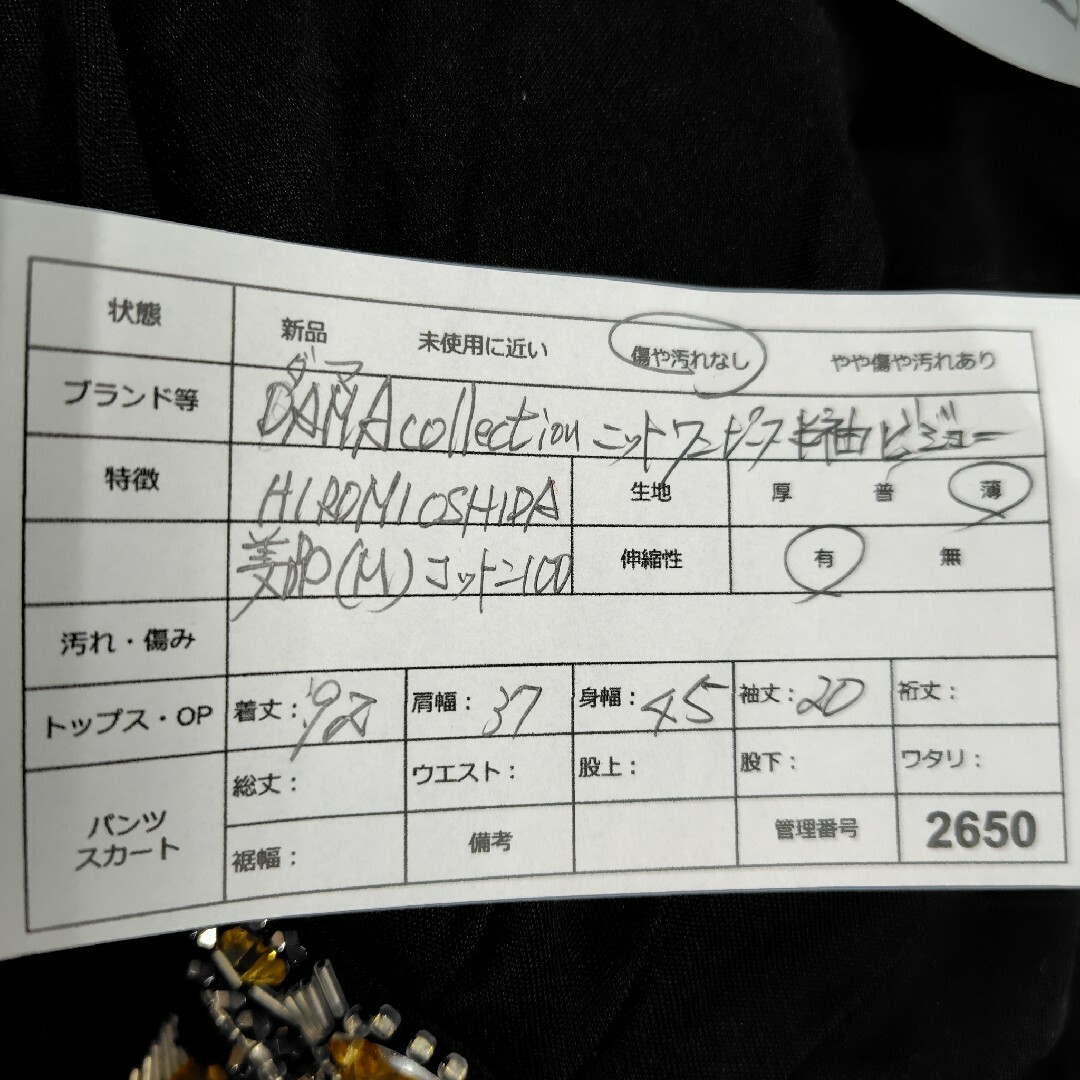 状態 新品 未使用に近い 傷や汚れなし やや傷や汚れあり
ダマ
ブランド等 DAMAcollection ニットワンピース 半袖 ビジュー
特徴 HIROMIYOSHIDA 生地 厚 普 薄
美品 (M) コットン100 伸縮性 有 無
汚れ・傷み
トップス・OP 着丈：92 肩幅：37 身幅：45 袖丈：20 裄丈：
総丈： ウエスト： 股上： 股下： ワタリ：
パンツ
スカート
裾幅： 備考 管理番号 2650